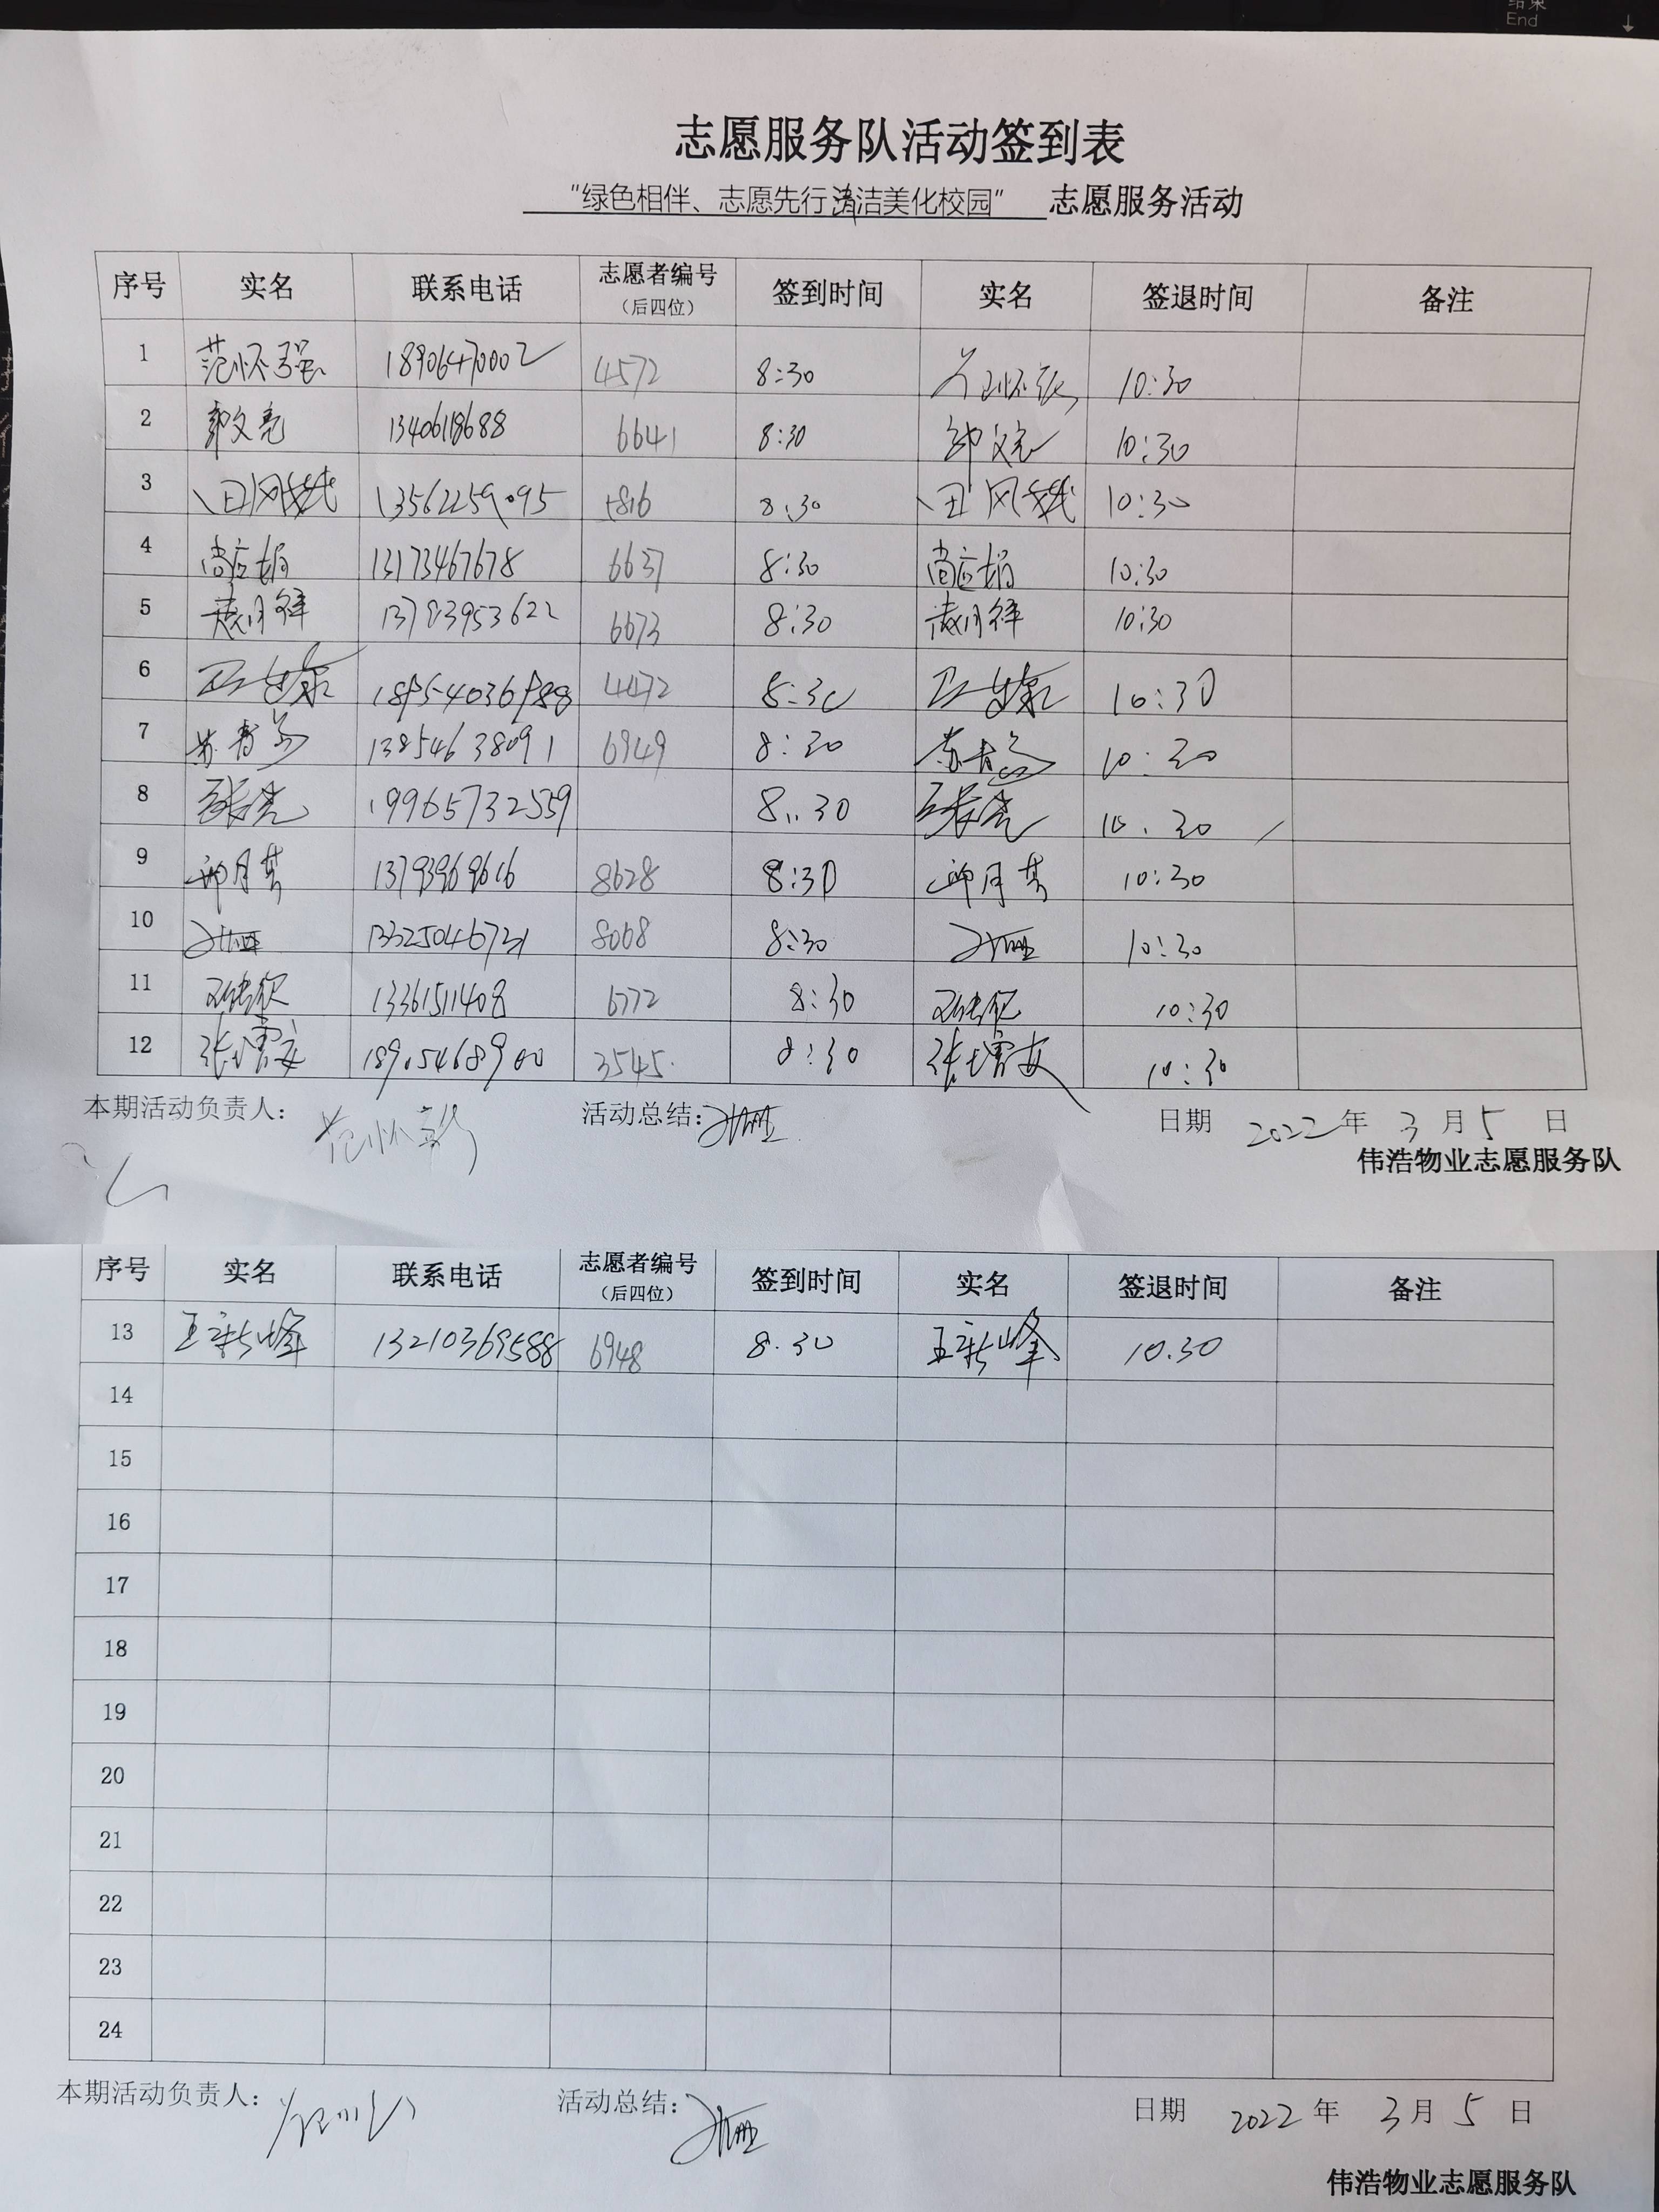 结束
End
↓
志愿服务队活动签到表
“绿色相伴、志愿先行清洁美化校园” 志愿服务活动
序号 实名 联系电话 志愿者编号（后四位） 签到时间 实名 签退时间 备注
1 范怀强 18906470002 4572 8:30 10:30
2 郭文亮 6641 8:30 郭文亮 10:30
3 田风 13562259095 8:30 田风 10:30
4 尚应娟 13173467678 6637 8:30 尚应娟 10:30
5 13783953622 6673 8:30 10:30
6 4472 8:30 10:30
7 13854638091 6949 8:30 10:30
8 张亮 19965732559 8:30 张亮 10:30
9 月英 13793969616 8628 8:30 月英 10:30
10 8068 8:30 10:30
11 13361511408 6772 8:30 10:30
12 张 18905468900 3545 8:30 张 10:30
本期活动负责人： 活动总结： 日期 2022年 3月5日
伟浩物业志愿服务队
序号 实名 联系电话 志愿者编号（后四位） 签到时间 实名 签退时间 备注
13 王新峰 13210369588 6948 8.30 王新峰 10.30
14
15
16
17
18
19
20
21
22
23
24
本期活动负责人： 活动总结： 日期 2022年 3月5日
伟浩物业志愿服务队